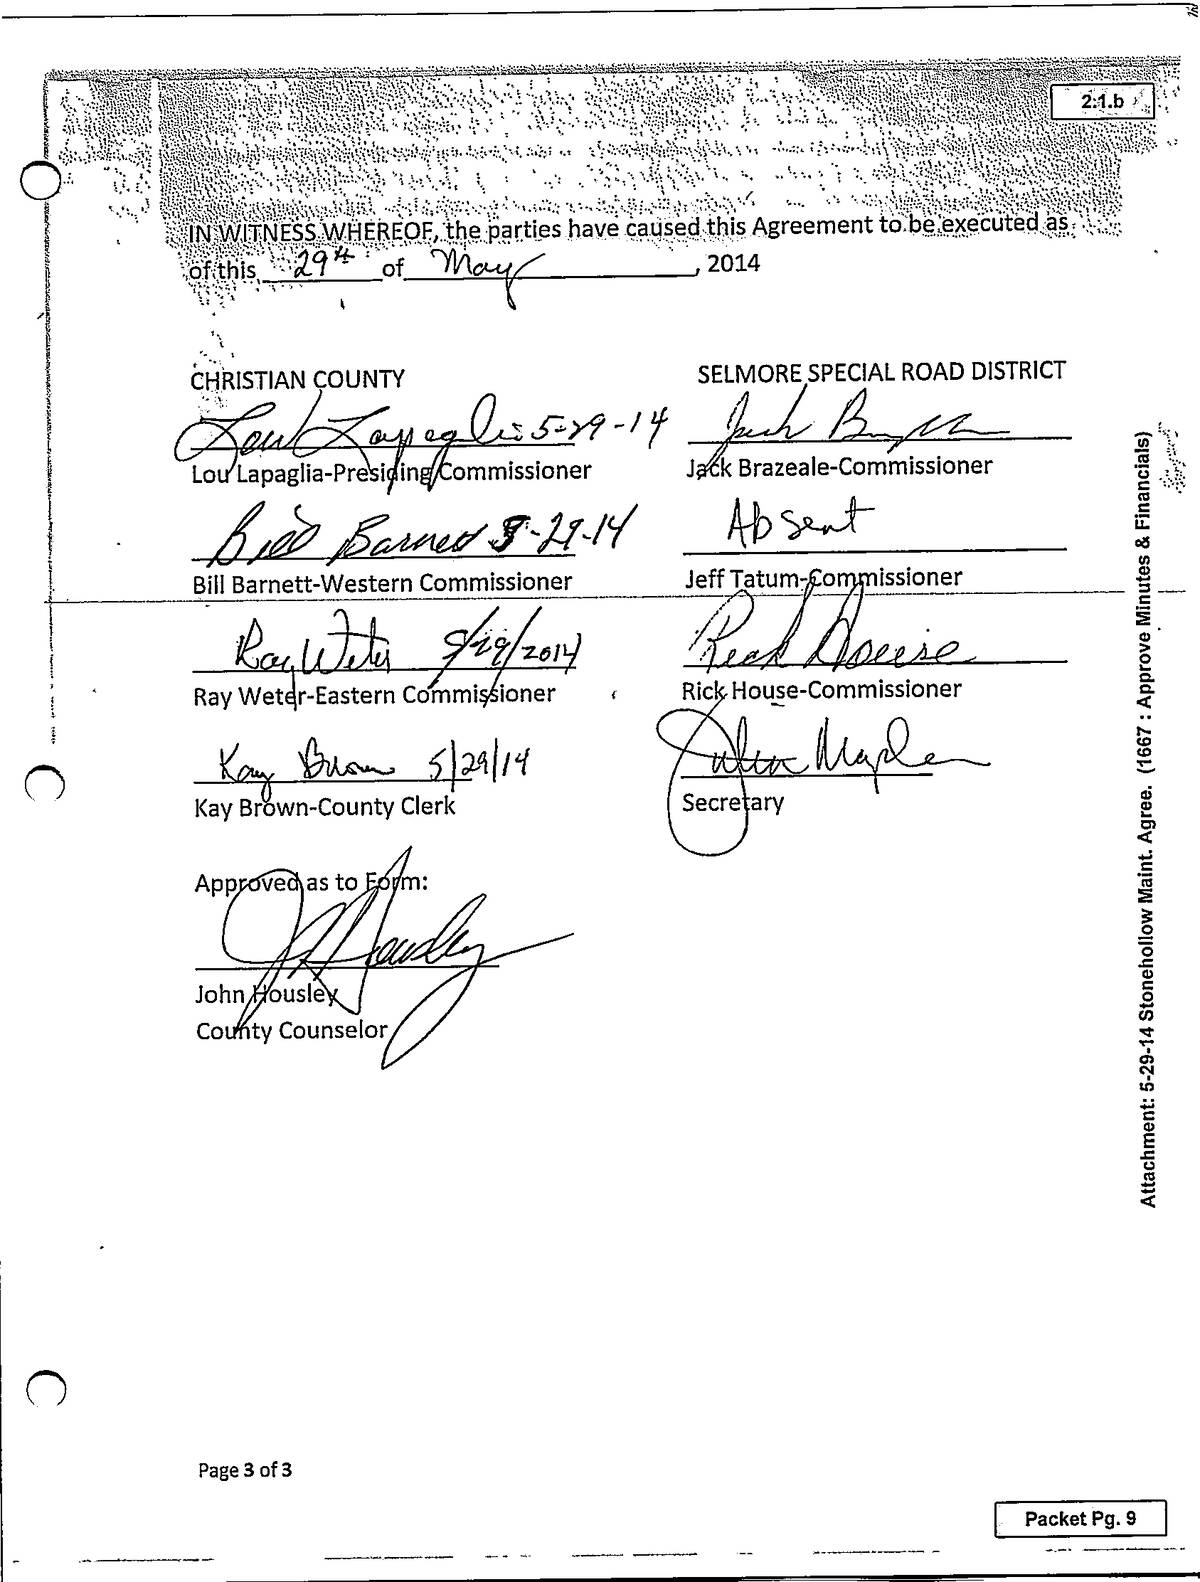 2.1.b
IN WITNESS WHEREOF, the parties have caused this Agreement to be executed as
of this 29th of May, 2014
CHRISTIAN COUNTY
Lou Lapaglia 5-29-14
Lou Lapaglia-Presiding Commissioner
Bill Barnett 5-29-14
Bill Barnett-Western Commissioner
Ray Weter 5/29/2014
Ray Weter-Eastern Commissioner
Kay Brown 5/29/14
Kay Brown-County Clerk
Approved as to Form:
J Housley
John Housley
County Counselor
SELMORE SPECIAL ROAD DISTRICT
Jack
Jack Brazeale-Commissioner
Absent
Jeff Tatum-Commissioner
Rick House
Rick House-Commissioner
Secretary
Attachment: 5-29-14 Stonehollow Maint. Agree. (1667 : Approve Minutes & Financials)
Page 3 of 3
Packet Pg. 9